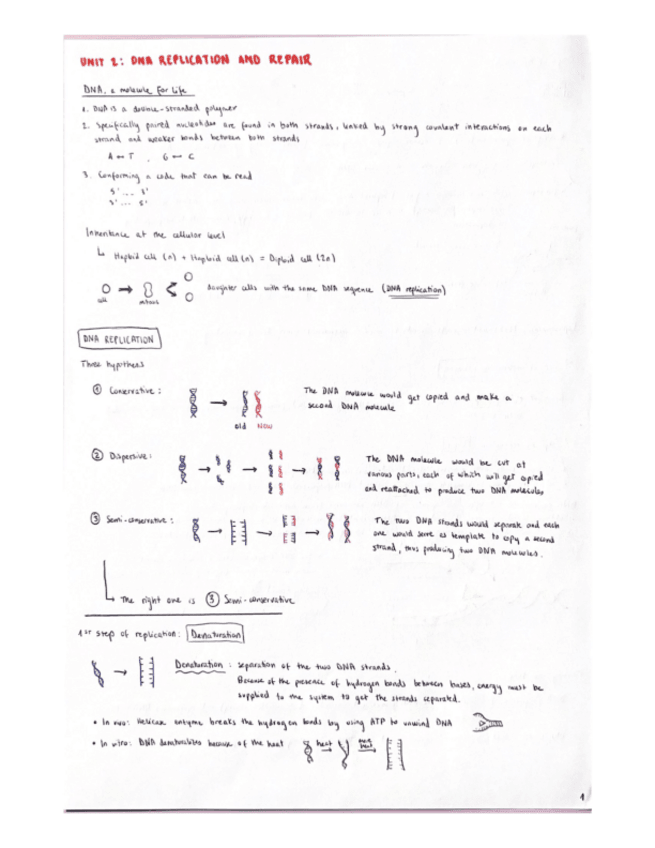 UNIT 2: DNA REPLICATION AND REPAIR
DNA, a molecule for life
1. DNA is a double-stranded polymer
2. Specifically paired nucleotides are found in both strands, linked by strong covalent interactions on each
strand and weaker bonds between both strands
A ↔ T , G ↔ C
3. Conforming a code that can be read
5' ... 3'
3' ... 5'
Inheritance at the cellular level
↳ Haploid cell (n) + Haploid cell (n) = Diploid cell (2n)
cell → mitosis daughter cells with the same DNA sequence (DNA replication)
DNA REPLICATION
Three hypothesis
① Conservative:
The DNA molecule would get copied and make a
second DNA molecule
old New
② Dispersive:
The DNA molecule would be cut at
various parts, each of which will get copied
and reattached to produce two DNA molecules
③ Semi-conservative:
The two DNA strands would separate and each
one would serve as template to copy a second
strand, thus producing two DNA molecules.
The right one is ③ Semi-conservative
1st step of replication: Denaturation
Denaturation: separation of the two DNA strands.
Because of the presence of hydrogen bonds between bases, energy must be
supplied to the system to get the strands separated.
• In vivo: Helicase enzyme breaks the hydrogen bonds by using ATP to unwind DNA
• In vitro: DNA denaturalizes because of the heat
heat → more heat →
1